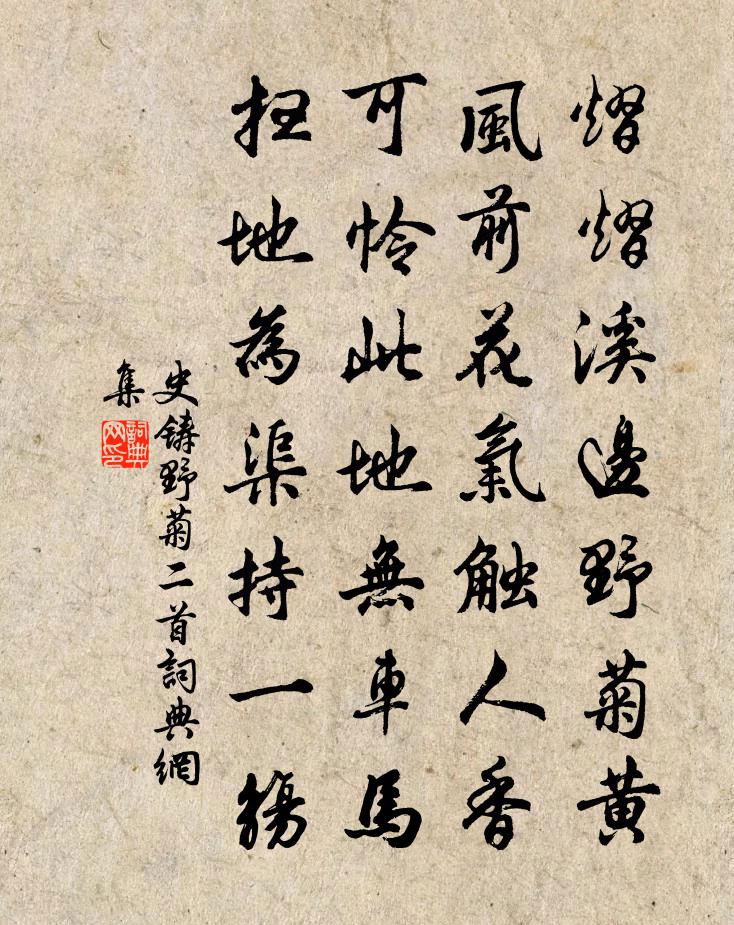 熠熠溪邊野菊黃
風前花氣觸人香
可怜此地無車馬
扫地為渠持一觴
史鑄野菊二首詞典網
集
詞典
网印